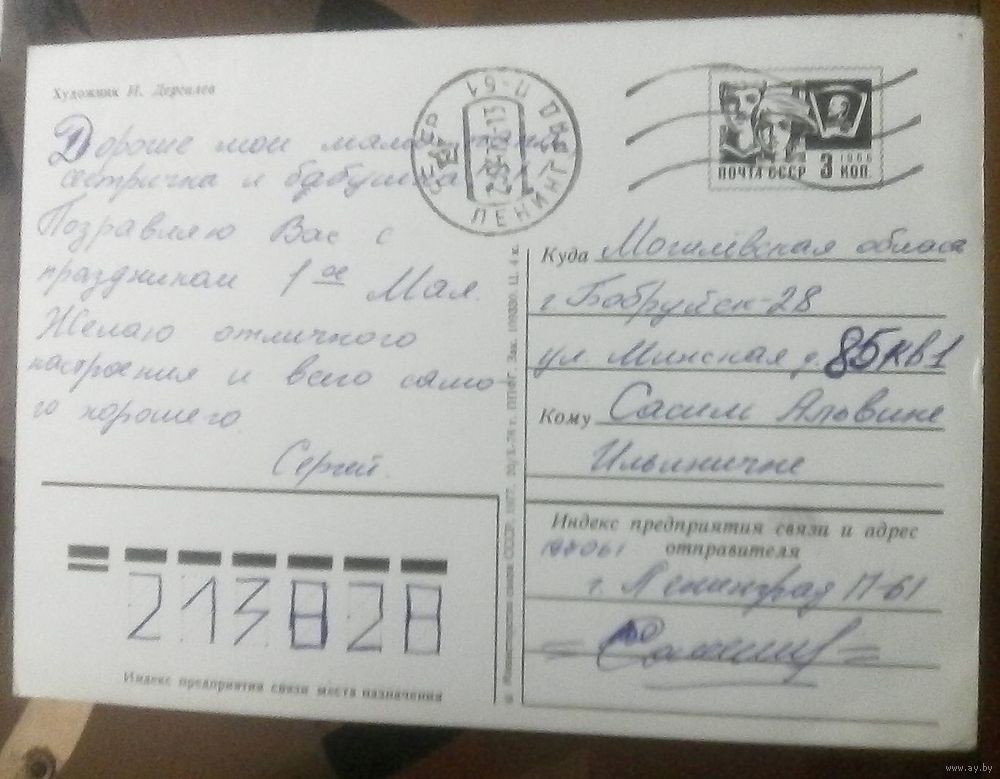 Художник И. Дергилев
Дорогие мои мама
сестричка и бабушка
Поздравляю Вас с
праздником 1 ое Мая.
Желаю отличного
настроения и всего само-
го хорошего.
Сергей.
ЛЕНИНГРАД П-61
ПОЧТА СССР 3 КОП.
1966
Куда Могилёвская область
г Бобруйск-28
ул. Минская д. 85 кв 1
Кому Сасим Альвине
Ильиничне
Индекс предприятия связи и адрес
отправителя
197061
г. Ленинград П-61
213828
Индекс предприятия связи места назначения
www.ay.by